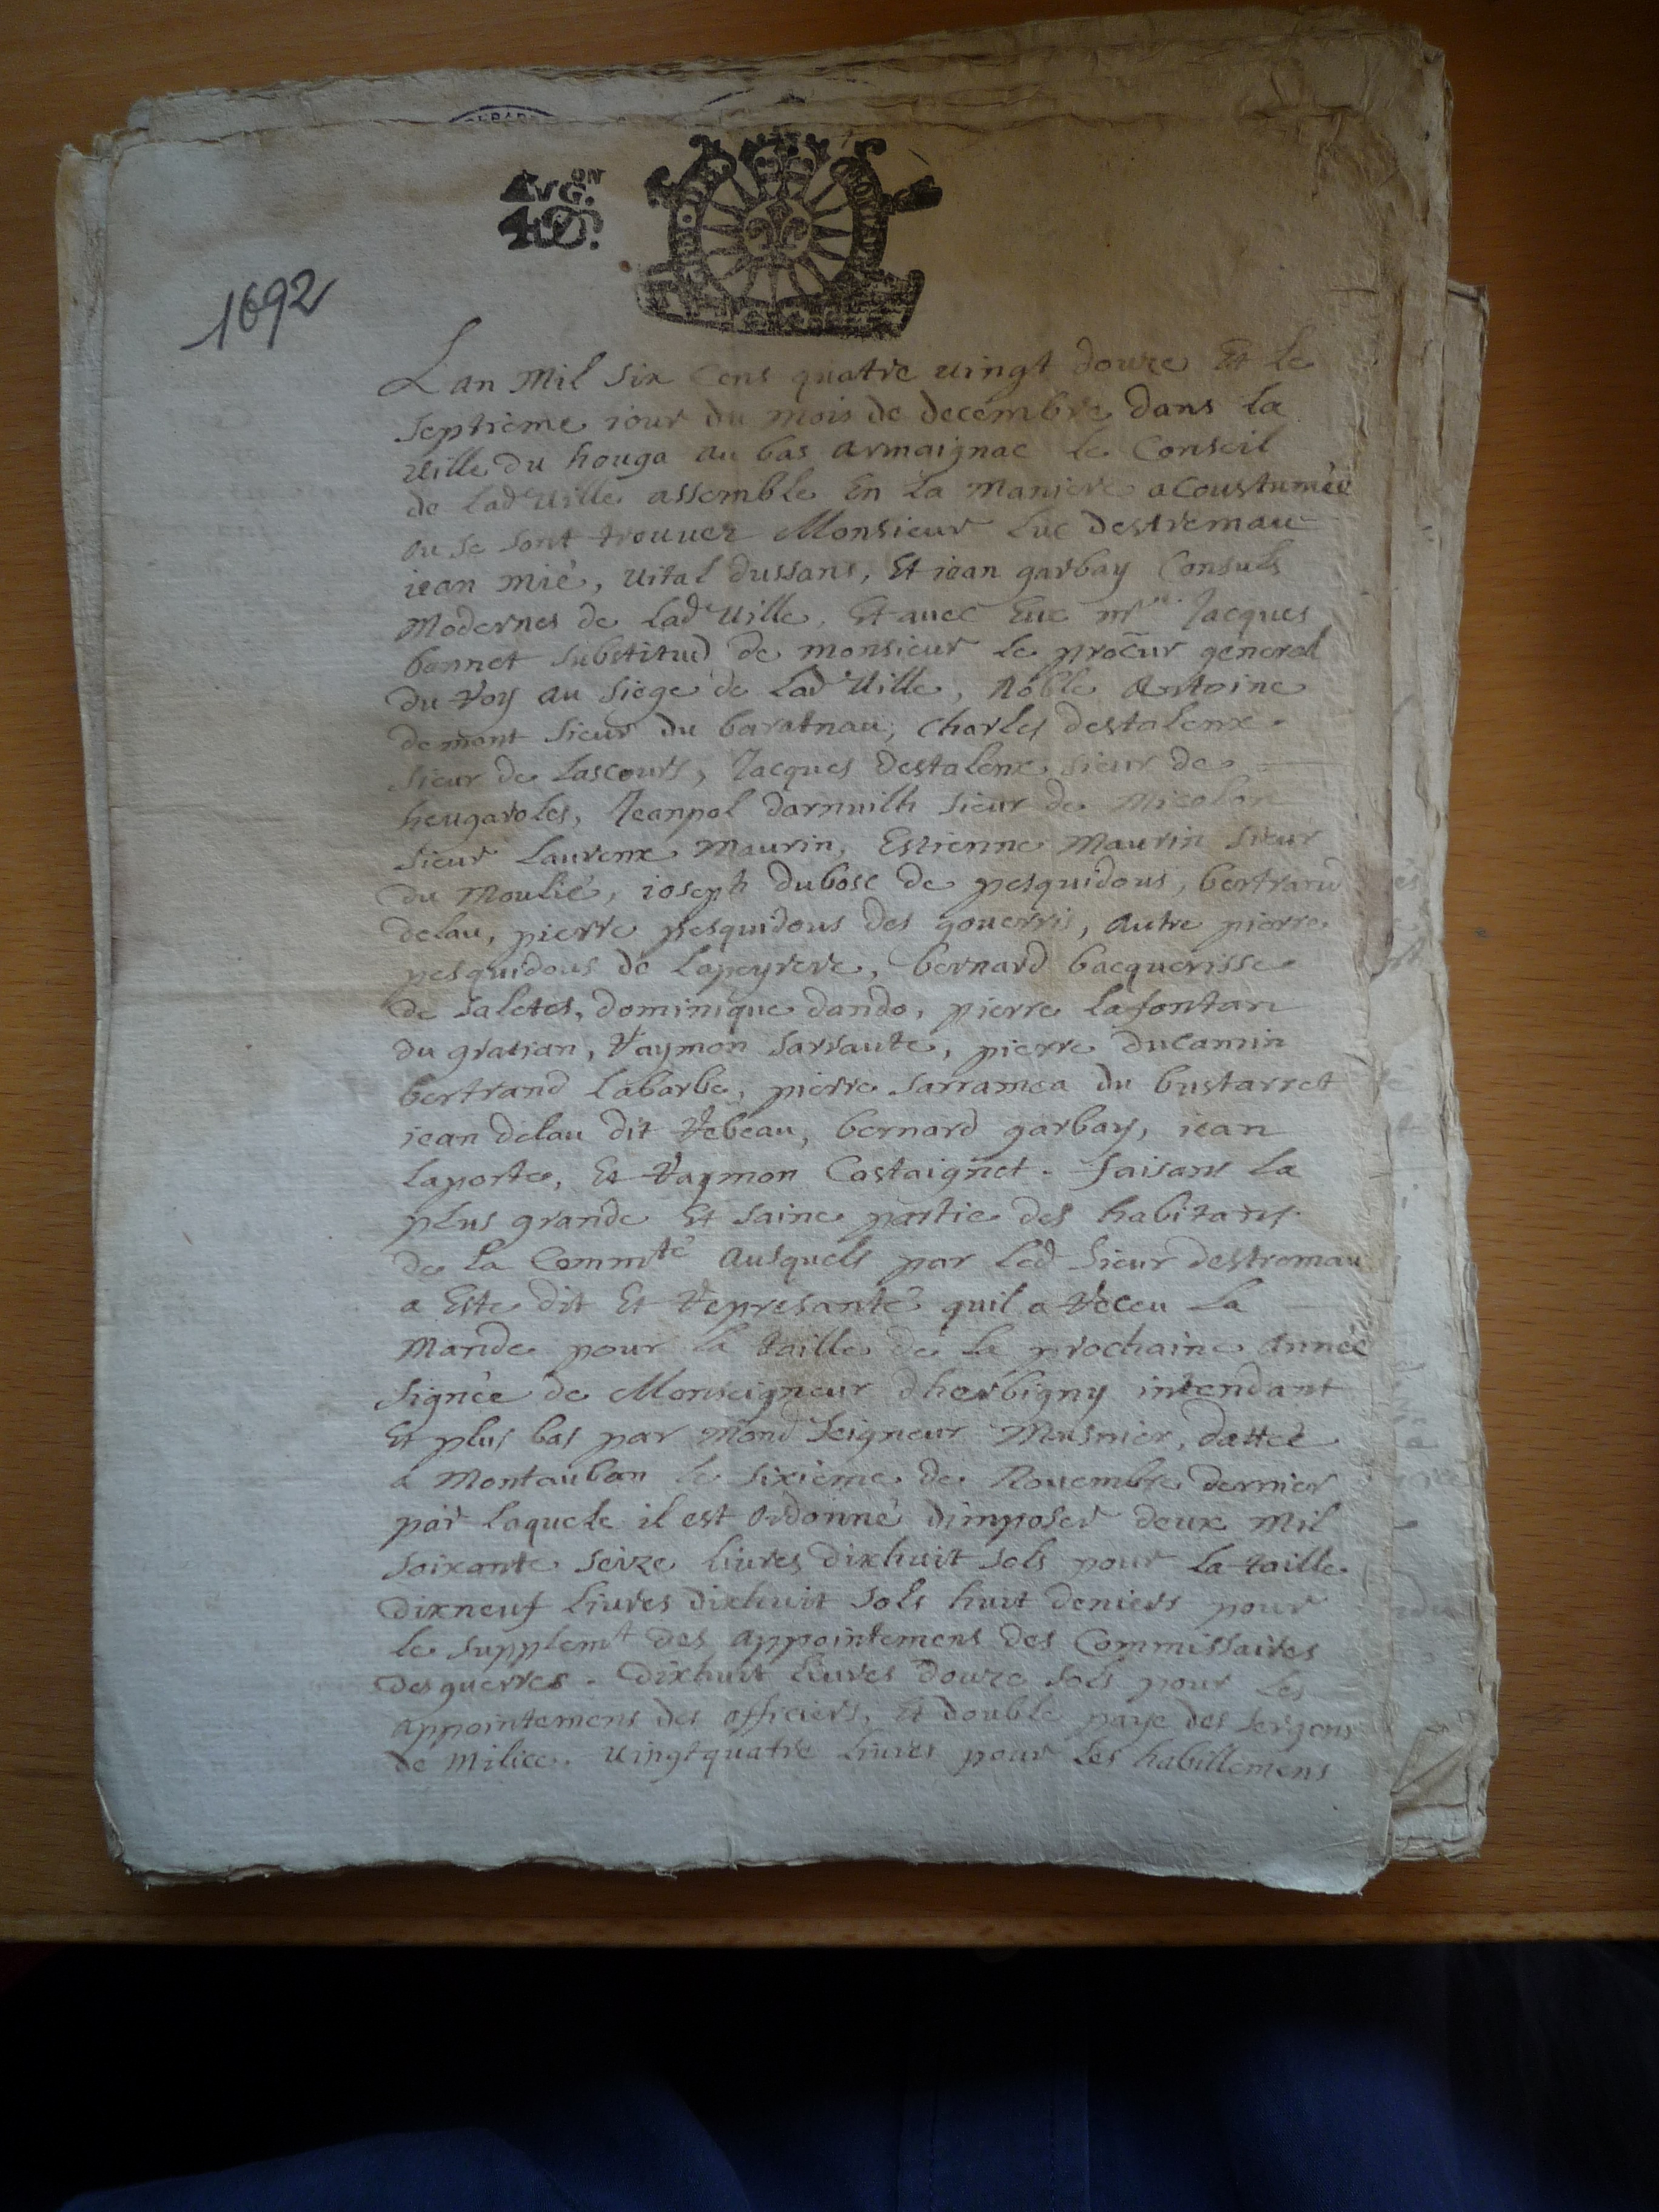 AVG.ON
40D.
1692
Lan Mil Six Cens quatre vingt douze Et le
Septieme iour du mois de decembre dans la
ville du houga au bas armaignac le Conseil
de lad ville assemble En la maniere acoustumée
ou se sont trouuez Monsieur Luc destremau
iean mié, vital dussans, Et iean garbay Consuls
Modernes de lad ville, Et auec Eux mr Jacques
bonnet substitud de monsieur le procur general
du Roy au siege de lad ville, Noble Antoine
demont sieur du baratnau, Charles destalenx
sieur de Lascours, Jacques destalenx sieur de
heugaroles, Jeanpol darmuilh sieur de Micolon
sieur Laurenx Maurin, Estienne Maurin sieur
du Moulié, ioseph dubosc de pesquidous, bertrand
delau, pierre pesquidous des gouerris, autre pierre
pesquidous de Lapeyrere, bernard bacquerisse
de saletes, dominique dando, pierre Lafontan
du gratian, Raymon sarraute, pierre ducamin
bertrand Labarbe, pierre sarramea du bustarret
iean delau dit Rebeau, bernard garbay, iean
Laporte, Et Raymon Castaignet. faisans la
plus grande Et saine partie des habitans
de la Commté ausquels par led sieur destremau
a Este dit Et Represanté quil a Receu la
Mande pour la taille de la prochaine année
signée de Monseigneur dherbigny intendant
Et plus bas par mond seigneur Musnier, dattée
a Montauban le sixieme de Nouembre dernier
par laquele il est ordonné dimposer deux mil
soixante seize liures dixhuit sols pour la taille
dixneuf liures dixhuit sols huit deniers pour
le supplemt des appointemens des Commissaires
des guerres. dixhuit liures douze sols pour les
appointemens des officiers, Et double paye des sergens
de milice. vingtquatre liures pour les habillemens